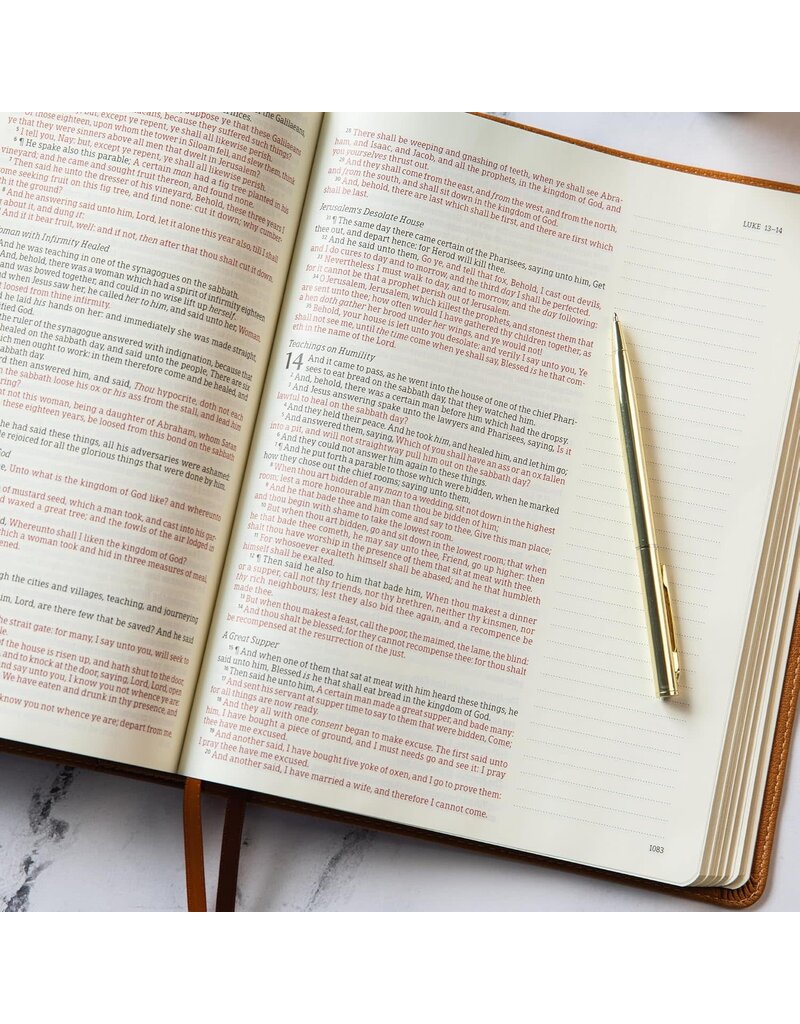 of those eighteen, upon whom the tower in Siloam fell, and slew them, think
ye that they were sinners above all men that dwelt in Jerusalem?
5 I tell you, Nay: but, except ye repent, ye shall all likewise perish.
6 ¶ He spake also this parable; A certain man had a fig tree planted in his
vineyard; and he came and sought fruit thereon, and found none.
7 Then said he unto the dresser of his vineyard, Behold, these three years I
come seeking fruit on this fig tree, and find none: cut it down; why cumber-
it the ground?
8 And he answering said unto him, Lord, let it alone this year also, till I shall
about it, and dung it:
9 And if it bear fruit, well: and if not, then after that thou shalt cut it down.
oman with Infirmity Healed
And he was teaching in one of the synagogues on the sabbath.
And, behold, there was a woman which had a spirit of infirmity eighteen
and was bowed together, and could in no wise lift up herself.
and when Jesus saw her, he called her to him, and said unto her, Woman,
loosed from thine infirmity.
he laid his hands on her: and immediately she was made straight,
ified God.
the ruler of the synagogue answered with indignation, because that
healed on the sabbath day, and said unto the people, There are six
ich men ought to work: in them therefore come and be healed, and
abbath day.
rd then answered him, and said, Thou hypocrite, doth not each
the sabbath loose his ox or his ass from the stall, and lead him
ring?
not this woman, being a daughter of Abraham, whom Satan
these eighteen years, be loosed from this bond on the sabbath
he had said these things, all his adversaries were ashamed:
e rejoiced for all the glorious things that were done by him.
God
e, Unto what is the kingdom of God like? and whereunto
of mustard seed, which a man took, and cast into his gar-
d waxed a great tree; and the fowls of the air lodged in
Whereunto shall I liken the kingdom of God?
which a woman took and hid in three measures of meal,
ened.
gh the cities and villages, teaching, and journeying
him, Lord, are there few that be saved? And he said
he strait gate: for many, I say unto you, will seek to
le.
of the house is risen up, and hath shut to the door,
and to knock at the door, saying, Lord, Lord, open
and say unto you, I know you not whence ye are:
We have eaten and drunk in thy presence, and
know you not whence ye are; depart from me,
LUKE 13–14
28 There shall be weeping and gnashing of teeth, when ye shall see Abra-
ham, and Isaac, and Jacob, and all the prophets, in the kingdom of God, and
you yourselves thrust out.
29 And they shall come from the east, and from the west, and from the north,
and from the south, and shall sit down in the kingdom of God.
30 And, behold, there are last which shall be first, and there are first which
shall be last.
Jerusalem's Desolate House
31 ¶ The same day there came certain of the Pharisees, saying unto him, Get
thee out, and depart hence: for Herod will kill thee.
32 And he said unto them, Go ye, and tell that fox, Behold, I cast out devils,
and I do cures to day and to morrow, and the third day I shall be perfected.
33 Nevertheless I must walk to day, and to morrow, and the day following:
for it cannot be that a prophet perish out of Jerusalem.
34 O Jerusalem, Jerusalem, which killest the prophets, and stonest them that
are sent unto thee; how often would I have gathered thy children together, as
a hen doth gather her brood under her wings, and ye would not!
35 Behold, your house is left unto you desolate: and verily I say unto you, Ye
shall not see me, until the time come when ye shall say, Blessed is he that com-
eth in the name of the Lord.
Teachings on Humility
14 And it came to pass, as he went into the house of one of the chief Phari-
sees to eat bread on the sabbath day, that they watched him.
2 And, behold, there was a certain man before him which had the dropsy.
3 And Jesus answering spake unto the lawyers and Pharisees, saying, Is it
lawful to heal on the sabbath day?
4 And they held their peace. And he took him, and healed him, and let him go;
5 And answered them, saying, Which of you shall have an ass or an ox fallen
into a pit, and will not straightway pull him out on the sabbath day?
6 And they could not answer him again to these things.
7 ¶ And he put forth a parable to those which were bidden, when he marked
how they chose out the chief rooms; saying unto them,
8 When thou art bidden of any man to a wedding, sit not down in the highest
room; lest a more honourable man than thou be bidden of him;
9 And he that bade thee and him come and say to thee, Give this man place;
and thou begin with shame to take the lowest room.
10 But when thou art bidden, go and sit down in the lowest room; that when
he that bade thee cometh, he may say unto thee, Friend, go up higher: then
shalt thou have worship in the presence of them that sit at meat with thee.
11 For whosoever exalteth himself shall be abased; and he that humbleth
himself shall be exalted.
12 ¶ Then said he also to him that bade him, When thou makest a dinner
or a supper, call not thy friends, nor thy brethren, neither thy kinsmen, nor
thy rich neighbours; lest they also bid thee again, and a recompence be
made thee.
13 But when thou makest a feast, call the poor, the maimed, the lame, the blind:
14 And thou shalt be blessed; for they cannot recompense thee: for thou shalt
be recompensed at the resurrection of the just.
A Great Supper
15 ¶ And when one of them that sat at meat with him heard these things, he
said unto him, Blessed is he that shall eat bread in the kingdom of God.
16 Then said he unto him, A certain man made a great supper, and bade many:
17 And sent his servant at supper time to say to them that were bidden, Come;
for all things are now ready.
18 And they all with one consent began to make excuse. The first said unto
him, I have bought a piece of ground, and I must needs go and see it: I pray
thee have me excused.
19 And another said, I have bought five yoke of oxen, and I go to prove them:
I pray thee have me excused.
20 And another said, I have married a wife, and therefore I cannot come.
1083